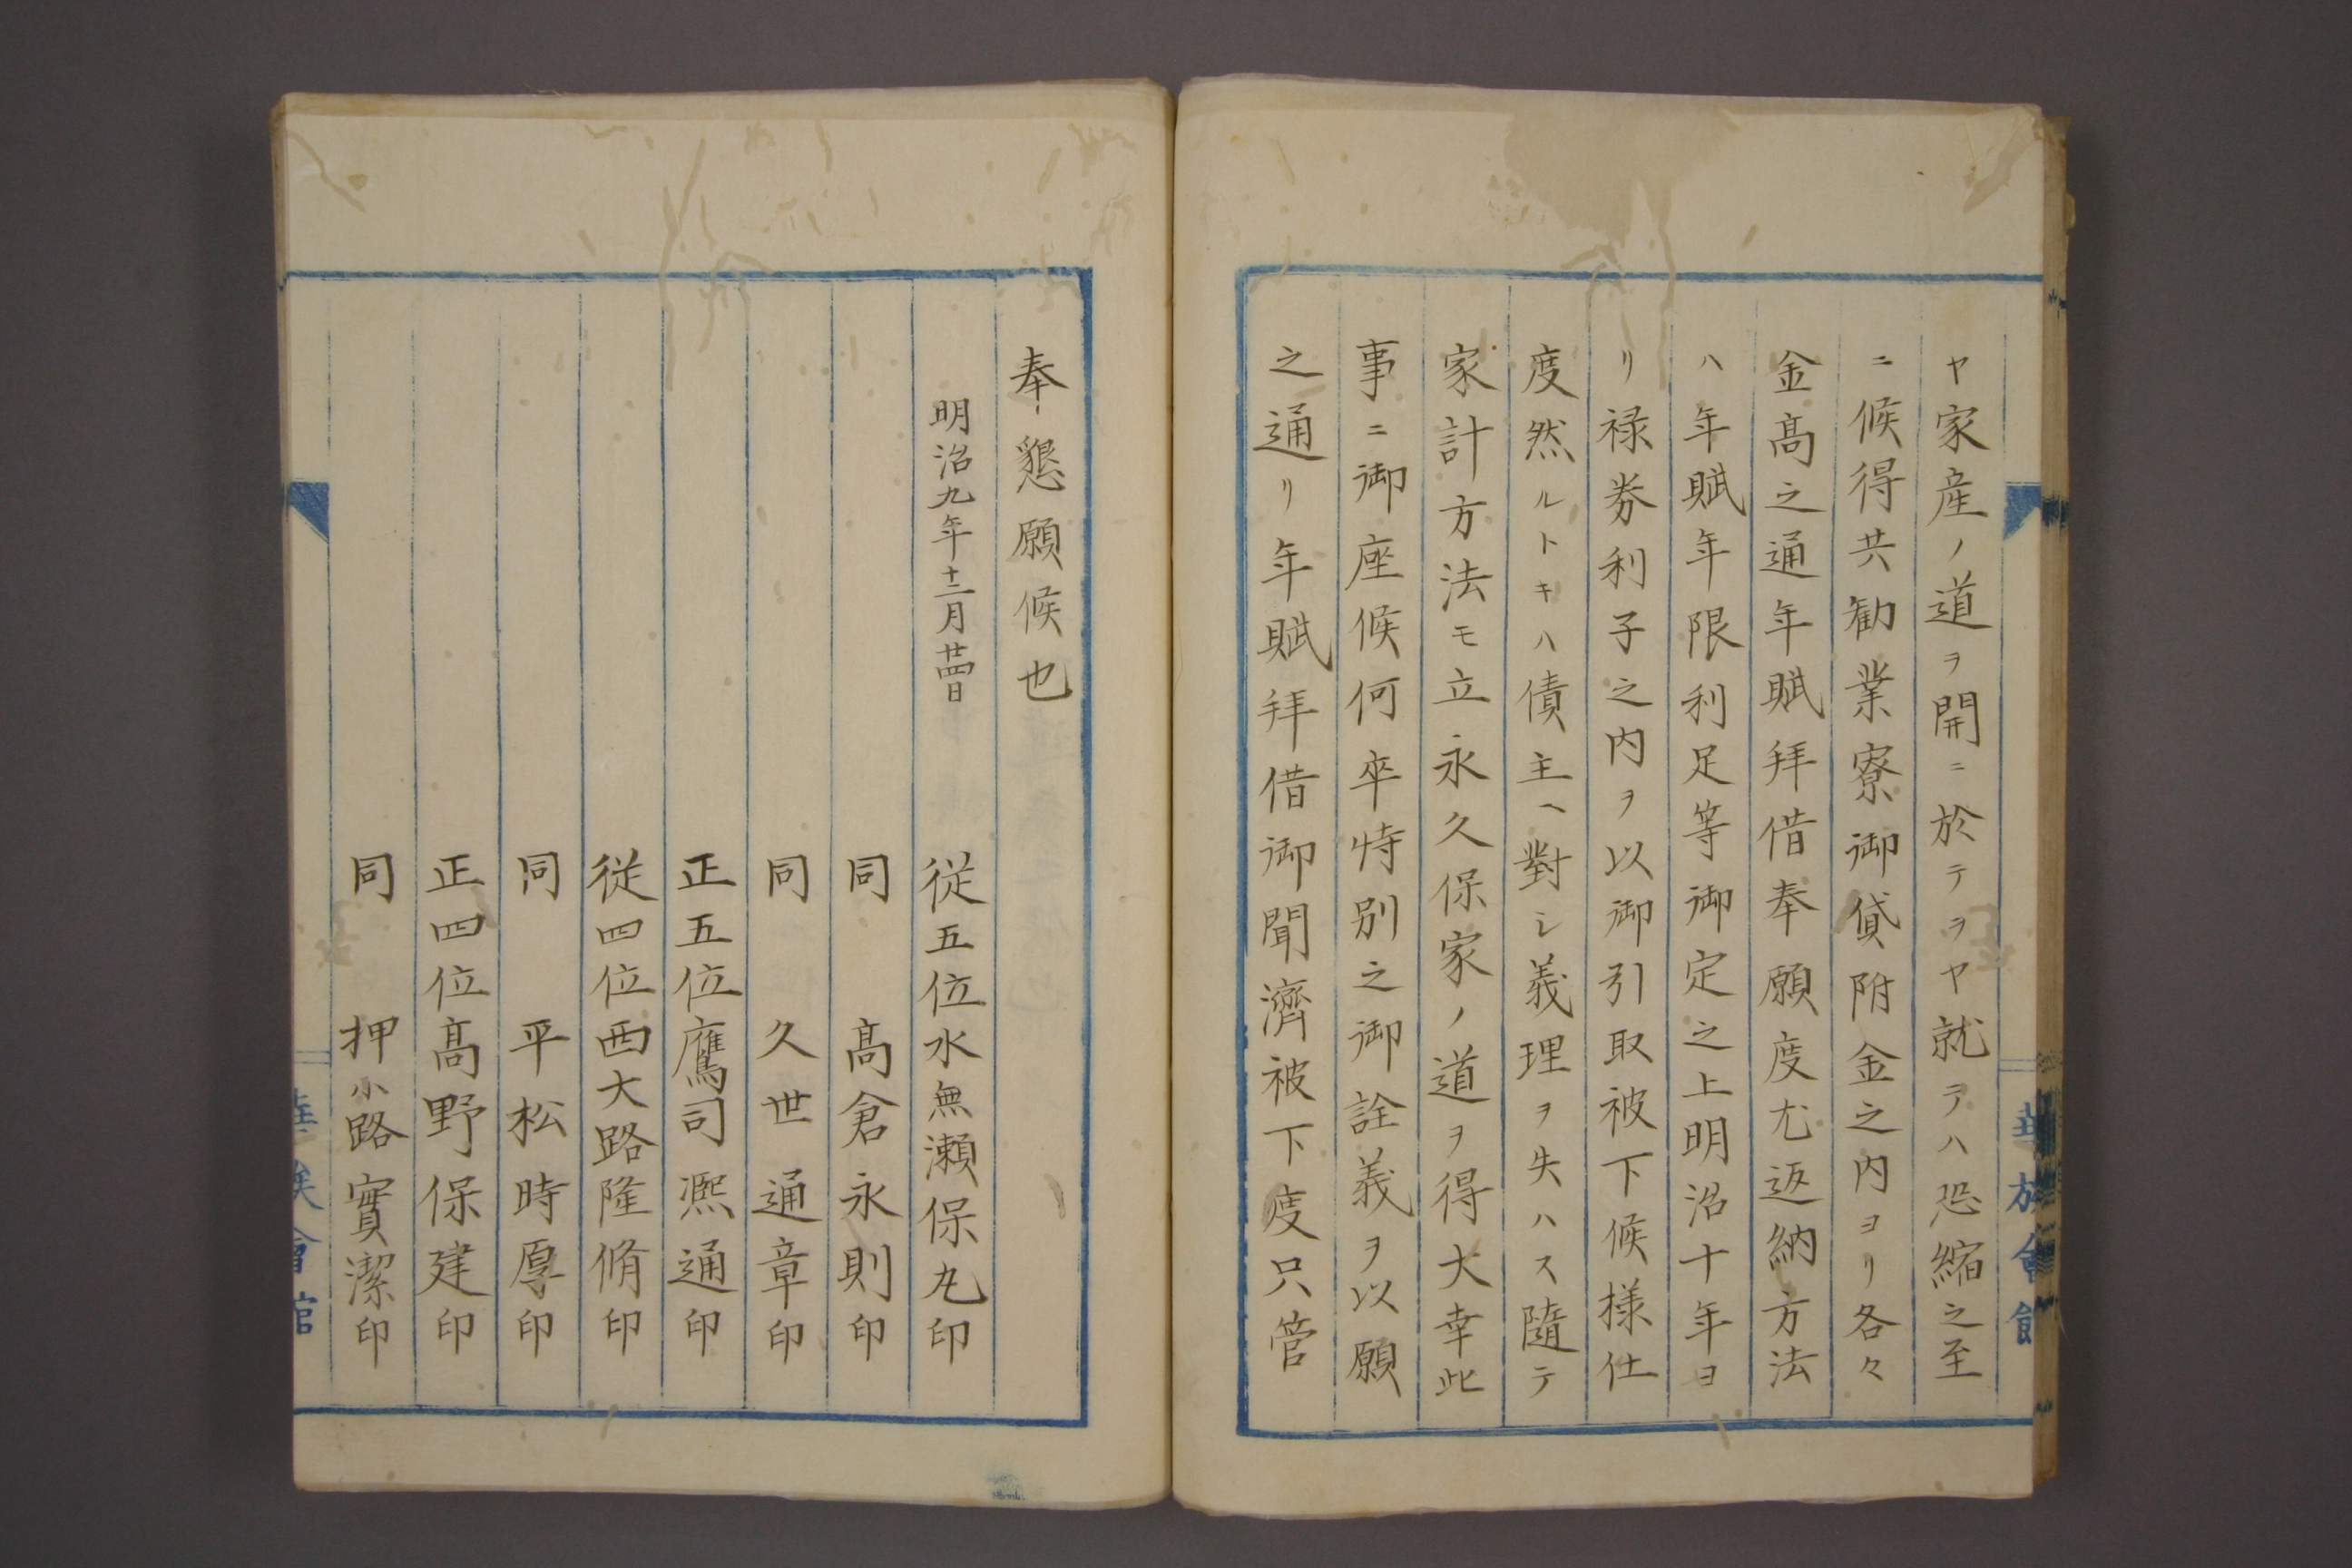 ヤ家産ノ道ヲ開ニ於テヲヤ就テハ恐縮之至
ニ候得共勧業寮御貸附金之内ヨリ各々
金髙之通年賦拜借奉願度尤返納方法
ハ年賦年限利足等御定之上明治十年ヨ
リ禄券利子之内ヲ以御引取被下候様仕
度然ルトキハ債主ヘ對シ義理ヲ失ハス隨テ
家計方法モ立永久保家ノ道ヲ得大幸此
事ニ御座候何卒特別之御詮義ヲ以願
之通リ年賦拜借御聞濟被下度只管
華族會館
奉懇願候也
明治九年十二月廿四日
従五位水無瀬保丸印
同 髙倉永則印
同 久世通章印
正五位鷹司凞通印
従四位西大路隆脩印
同 平松時厚印
正四位髙野保建印
同 押小路實潔印
華族會館